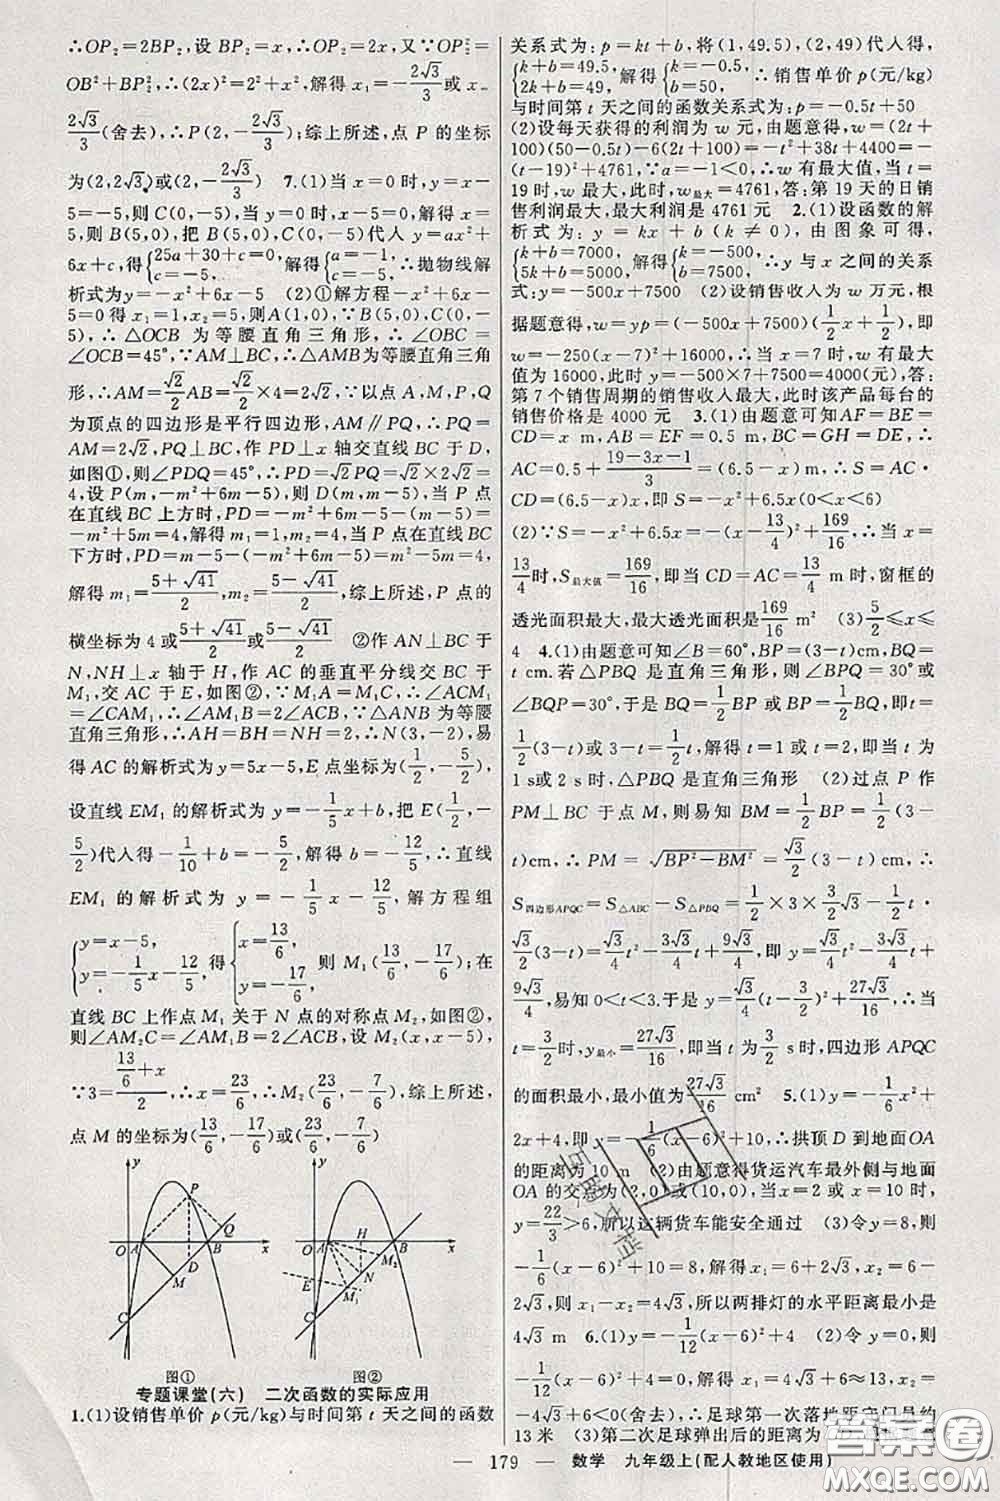 ∴OP₂=2BP₂,设 BP₂=x,∴OP₂=2x,又∵OP₂²=
OB²+BP₂²,∴(2x)²=2²+x²,解得 x₁=-2√3/3或 x=
2√3/3(舍去),∴P(2,-2√3/3);综上所述,点 P 的坐标
为(2,2√3)或(2,-2√3/3) 7.(1)当 x=0时,y=x-
5=-5,则C(0,-5),当 y=0 时,x-5=0,解得 x=
5,则 B(5,0),把 B(5,0),C(0,-5)代人 y=ax²+
6x+c,得{25a+30+c=0, c=-5, 解得{a=-1, c=-5, ∴抛物线解
析式为y=-x²+6x-5 (2)①解方程-x²+6x-
5=0得 x₁=1,x₂=5,则A(1,0),∵B(5,0),C(0,-
5),∴△OCB 为等腰直角三角形,∴∠OBC=
∠OCB=45°,∵AM⊥BC,∴△AMB为等腰直角三角
形,∴AM=√2/2AB=√2/2×4=2√2,∵以点 A,M,P,Q
为顶点的四边形是平行四边形,AM∥PQ,∴PQ=
AM=2√2,PQ⊥BC,作 PD⊥x 轴交直线 BC 于 D,
如图①,则∠PDQ=45°,∴PD=√2PQ=√2×2√2=
4,设 P(m,-m²+6m-5),则 D(m,m-5),当 P点
在直线 BC 上方时,PD=-m²+6m-5-(m-5)=
-m²+5m=4,解得 m₁=1,m₂=4,当 P 点在直线 BC
下方时,PD=m-5-(-m²+6m-5)=m²-5m=4,
解得 m₁=(5+√41)/2,m₂=(5-√41)/2,综上所述,P 点的
横坐标为 4 或(5+√41)/2或(5-√41)/2 ②作 AN⊥BC 于
N,NH⊥x 轴于 H,作 AC 的垂直平分线交 BC 于
M₁,交 AC 于 E,如图②,∵M₁A=M₁C,∴∠ACM₁
=∠CAM₁,∴∠AM₁B=2∠ACB,∵△ANB 为等腰
直角三角形,∴AH=BH=NH=2,∴N(3,-2),易
得 AC 的解析式为 y=5x-5,E 点坐标为(1/2,-5/2),
设直线 EM₁ 的解析式为 y=-1/5x+b,把 E(1/2,-
5/2)代人得-1/10+b=-5/2,解得 b=-12/5,∴直线
EM₁ 的解析式为 y=-1/5x-12/5,解方程组
{y=x-5, y=-1/5x-12/5, 得{x=13/6, y=-17/6, 则 M₁(13/6,-17/6);在
直线 BC 上作点 M₁ 关于 N 点的对称点 M₂,如图②,
则∠AM₂C=∠AM₁B=2∠ACB,设 M₂(x,x-5),
∵3=(13/6+x)/2,∴x=23/6,∴M₂(23/6,-7/6),综上所述,
点 M 的坐标为(13/6,-17/6)或(23/6,-7/6)
y P Q O A B x M C 图①
y H O A B x M₂ E N M₁ C 图②
专题课堂(六) 二次函数的实际应用
1.(1)设销售单价 p(元/kg)与时间第 t 天之间的函数
关系式为:p=kt+b,将(1,49.5),(2,49)代人得,
{k+b=49.5, 2k+b=49, 解得{k=-0.5, b=50, ∴销售单价 p(元/kg)
与时间第 t 天之间的函数关系式为:p=-0.5t+50
(2)设每天获得的利润为 w 元,由题意得,w=(2t+
100)(50-0.5t)-6(2t+100)=-t²+38t+4400=-
(t-19)²+4761,∵a=-1<0,∴w 有最大值,当 t=
19时,w 最大,此时,w最大=4761,答:第 19 天的日销
售利润最大,最大利润是 4761 元 2.(1)设函数的解
析式为:y=kx+b(k≠0),由图象可得,
{k+b=7000, 5k+b=5000, 解得{k=-500, b=7500, ∴y 与 x 之间的关系
式:y=-500x+7500 (2)设销售收人为 w 万元,根
据题意得,w=yp=(-500x+7500)(1/2x+1/2),即
w=-250(x-7)²+16000,∴当 x=7 时,w 有最大
值为 16000,此时 y=-500×7+7500=4000(元),答:
第 7 个销售周期的销售收人最大,此时该产品每台的
销售价格是 4000 元 3.(1)由题意可知AF=BE=
CD=x m,AB=EF=0.5 m,BC=GH=DE,∴
AC=0.5+(19-3x-1)/3=(6.5-x)m,∴S=AC·
CD=(6.5-x)x,即 S=-x²+6.5x(0<x<6)
(2)∵S=-x²+6.5x=-(x-13/4)²+169/16,∴当 x=
13/4时,S最大值=169/16,即当 CD=AC=13/4 m 时,窗框的
透光面积最大,最大透光面积是169/16 m² (3)5/2≤x≤
4 4.(1)由题意可知∠B=60°,BP=(3-t)cm,BQ=
t cm.若△PBQ 是直角三角形,则∠BPQ=30°或
∠BQP=30°,于是 BQ=1/2BP 或 BP=1/2BQ,即t=
1/2(3-t)或 3-t=1/2t,解得 t=1 或 t=2,即当 t 为
1 s或 2 s 时,△PBQ 是直角三角形 (2)过点 P 作
PM⊥BC 于点 M,则易知 BM=1/2BP=1/2(3-
t)cm,∴PM=√(BP²-BM²)=√3/2(3-t)cm,∴
S四边形APQC=S△ABC-S△PBQ=1/2×3×3/2√3-1/2t·
√3/2(3-t)=√3/4t²-3√3/4t+9√3/4,即 y=√3/4t²-3√3/4t+
9√3/4,易知 0<t<3.于是 y=√3/4(t-3/2)²+27√3/16,∴当
t=3/2时,y最小=27√3/16,即当 t 为3/2 s 时,四边形 APQC
的面积最小,最小值为27√3/16 cm² 5.(1)y=-1/6x²+
2x+4,即 y=-1/6(x-6)²+10,∴拱顶 D 到地面OA
的距离为 10 m (2)由题意得货运汽车最外侧与地面
OA 的交点为(2,0)或(10,0),当 x=2 或 x=10 时,
y=22/3>6,所以这辆货车能安全通过 (3)令 y=8,则
-1/6(x-6)²+10=8,解得 x₁=6+2√3,x₂=6-
2√3,则 x₁-x₂=4√3,所以两排灯的水平距离最小是
4√3 m 6.(1)y=-1/12(x-6)²+4 (2)令 y=0,则
-1/12(x-6)²+4=0,解得 x₁=4√3+6≈13,x₂=
-4√3+6<0(舍去),∴足球第一次落地距守门员约
13 米 (3)第二次足球弹出后的距离为
— 179 — 数学 九年级上(配人教地区使用)
答案卷
MXQE.COM